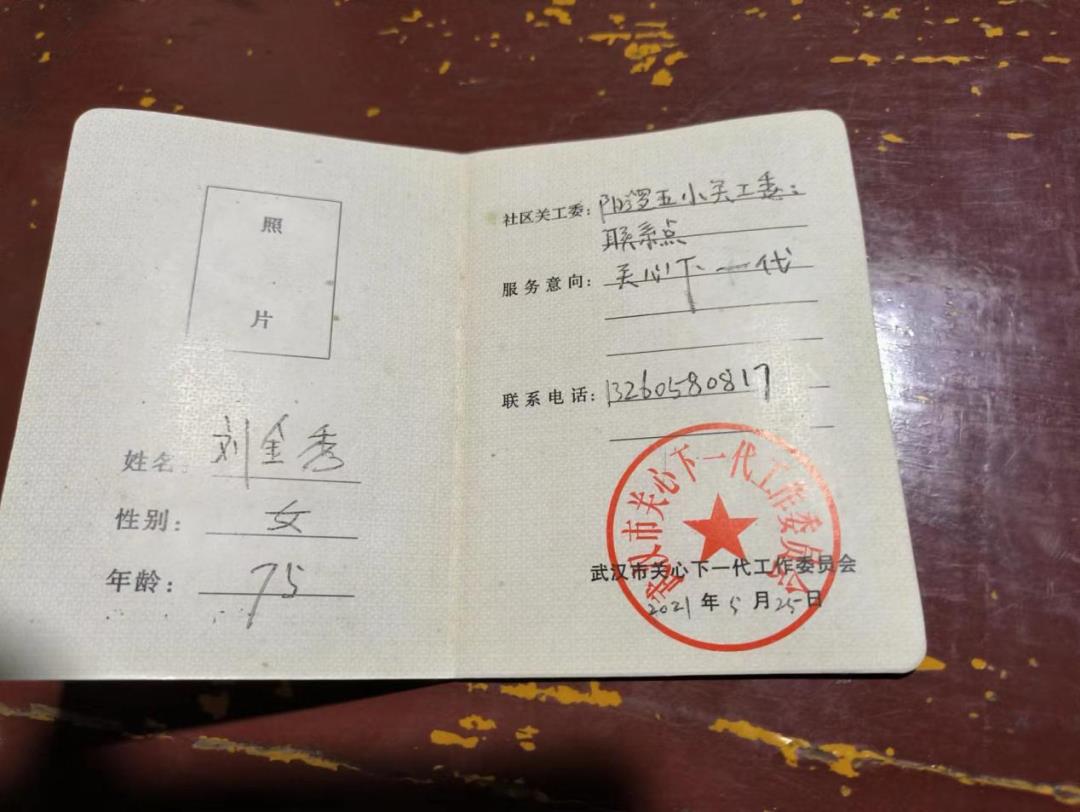 照
片
姓名: 刘金秀
性别: 女
年龄: 75
社区关工委: 阳逻五小关工委:
联系点
服务意向: 关心下一代
联系电话: 13260580817
武汉市关心下一代工作委员会
武汉市关心下一代工作委员会
2021年5月25日